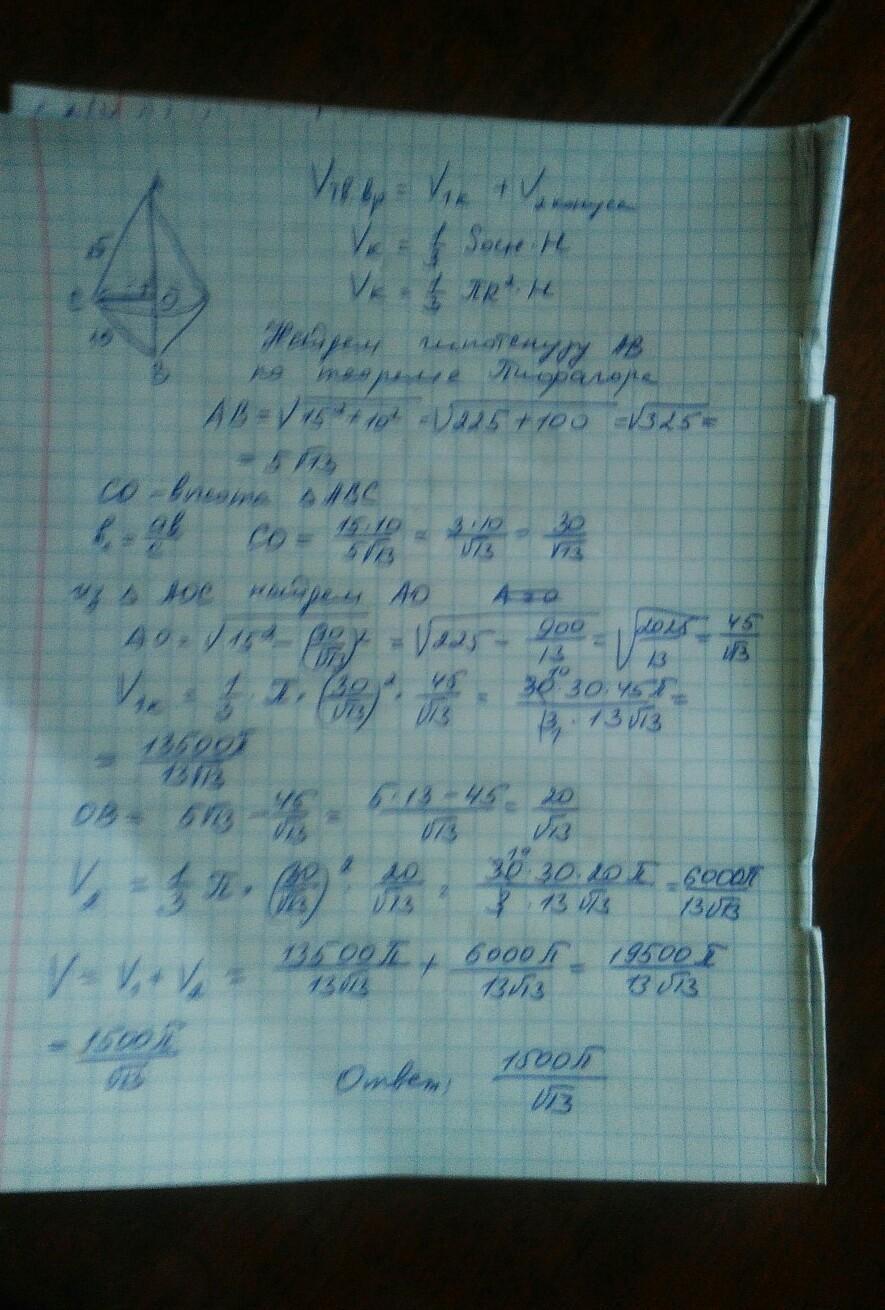 V тв.вр = V 1к + V 2 конуса
Vк = 1/3 Sосн · H
Vк = 1/3 πR² · H
15
C
O
10
B
Найдем гипотенузу AB
по теореме Пифагора
AB = √(15² + 10²) = √(225 + 100) = √325 =
= 5√13
CO – высота ΔABC
h = ab/c CO = 15·10/5√13 = 3·10/√13 = 30/√13
из Δ AOC найдем AO
AO = √(15² – (30/√13)²) = √(225 – 900/13) = √(2025/13) = 45/√13
V1к = 1/3 · π · (30/√13)² · 45/√13 = 30·30·45π/3·13√13 =
= 13500π/13√13
OB = 5√13 – 45/√13 = (5·13 – 45)/√13 = 20/√13
V2 = 1/3 π · (30/√13)² · 20/√13 = 30·30·20π/3·13√13 = 6000π/13√13
V = V1 + V2 = 13500π/13√13 + 6000π/13√13 = 19500π/13√13
= 1500π/√13
Ответ: 1500π/√13